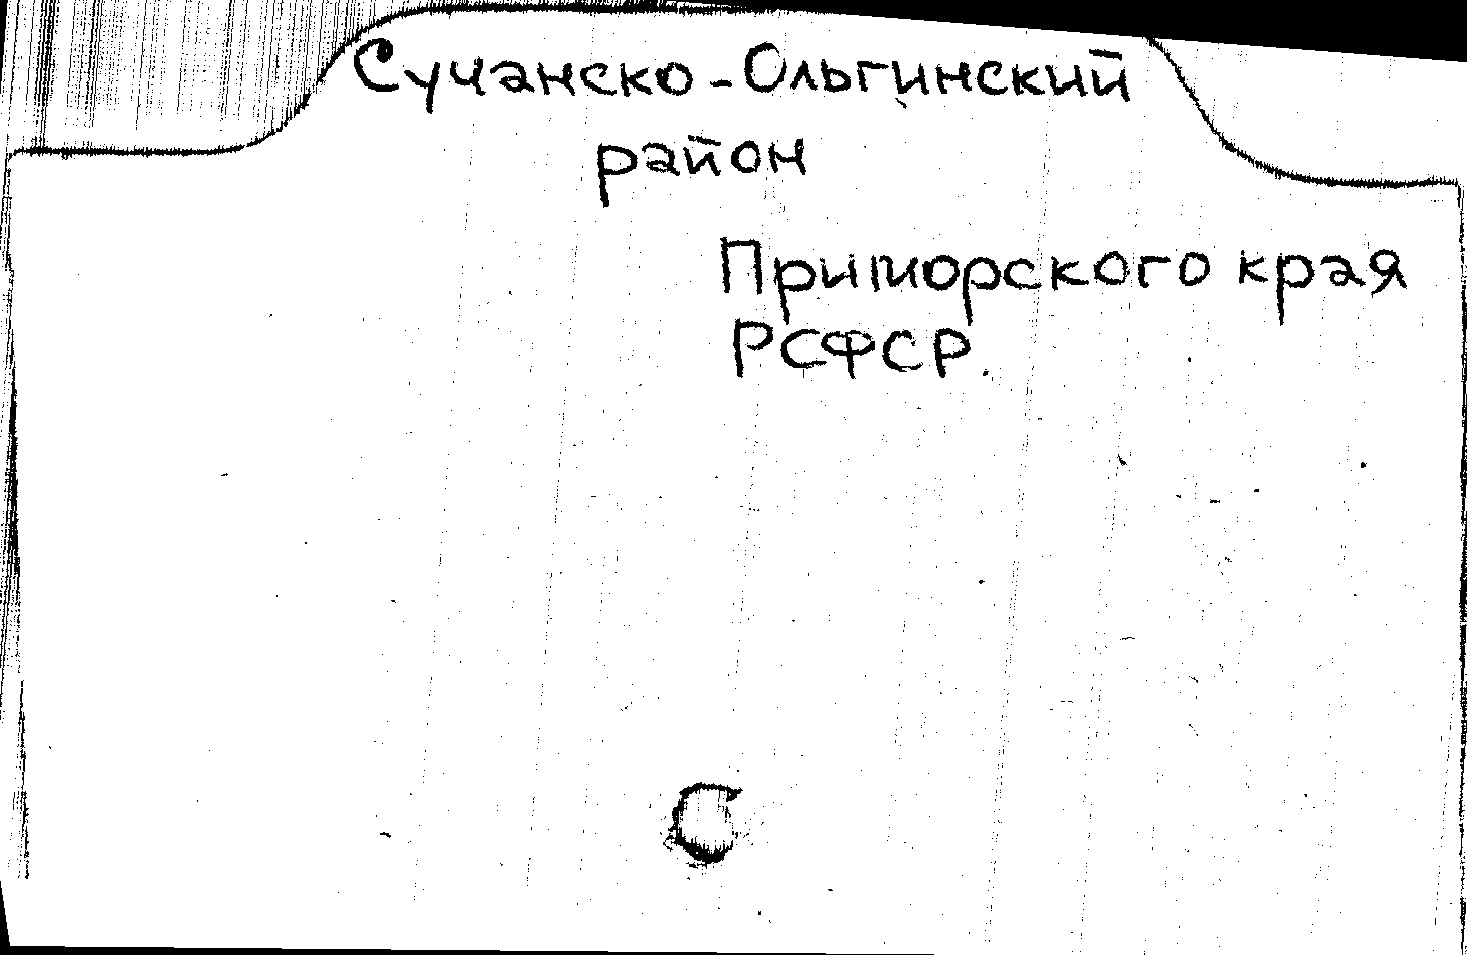 Сучанско-Ольгинский
район
Приморского края
РСФСР.